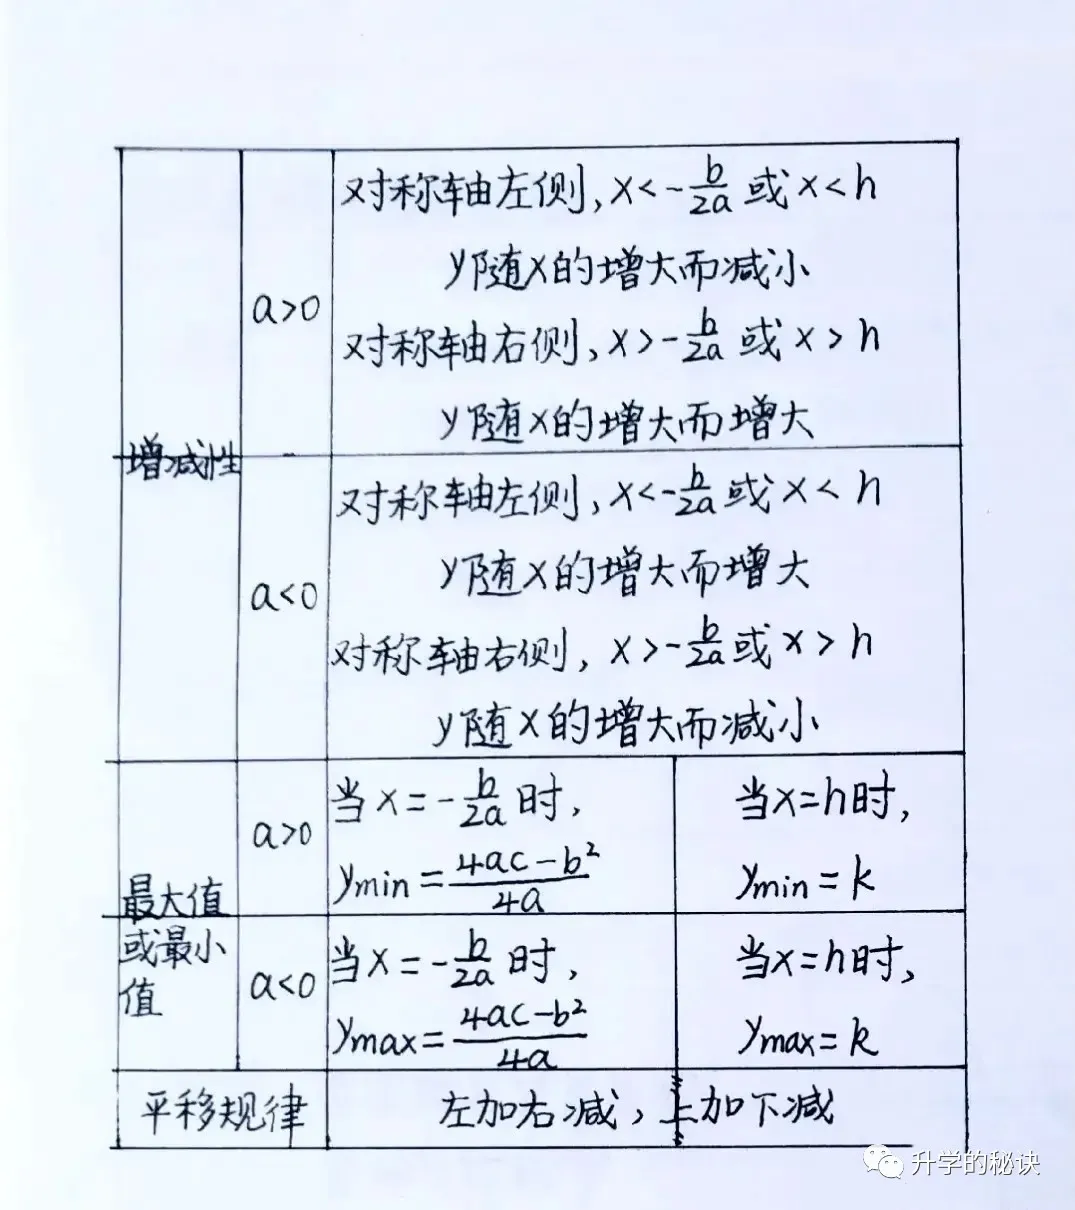 对称轴左侧,x<-b/2a 或 x<h
y随x的增大而减小
a>0
对称轴右侧,x>-b/2a 或 x>h
y随x的增大而增大
增减性
对称轴左侧,x<-b/2a 或 x<h
y随x的增大而增大
a<0
对称轴右侧,x>-b/2a 或 x>h
y随x的增大而减小
当x=-b/2a 时,
当x=h时,
a>0
ymin=4ac-b²/4a
ymin=k
最大值
或最小
值
当x=-b/2a 时,
当x=h时,
a<0
ymax=4ac-b²/4a
ymax=k
平移规律
左加右减,上加下减
升学的秘诀